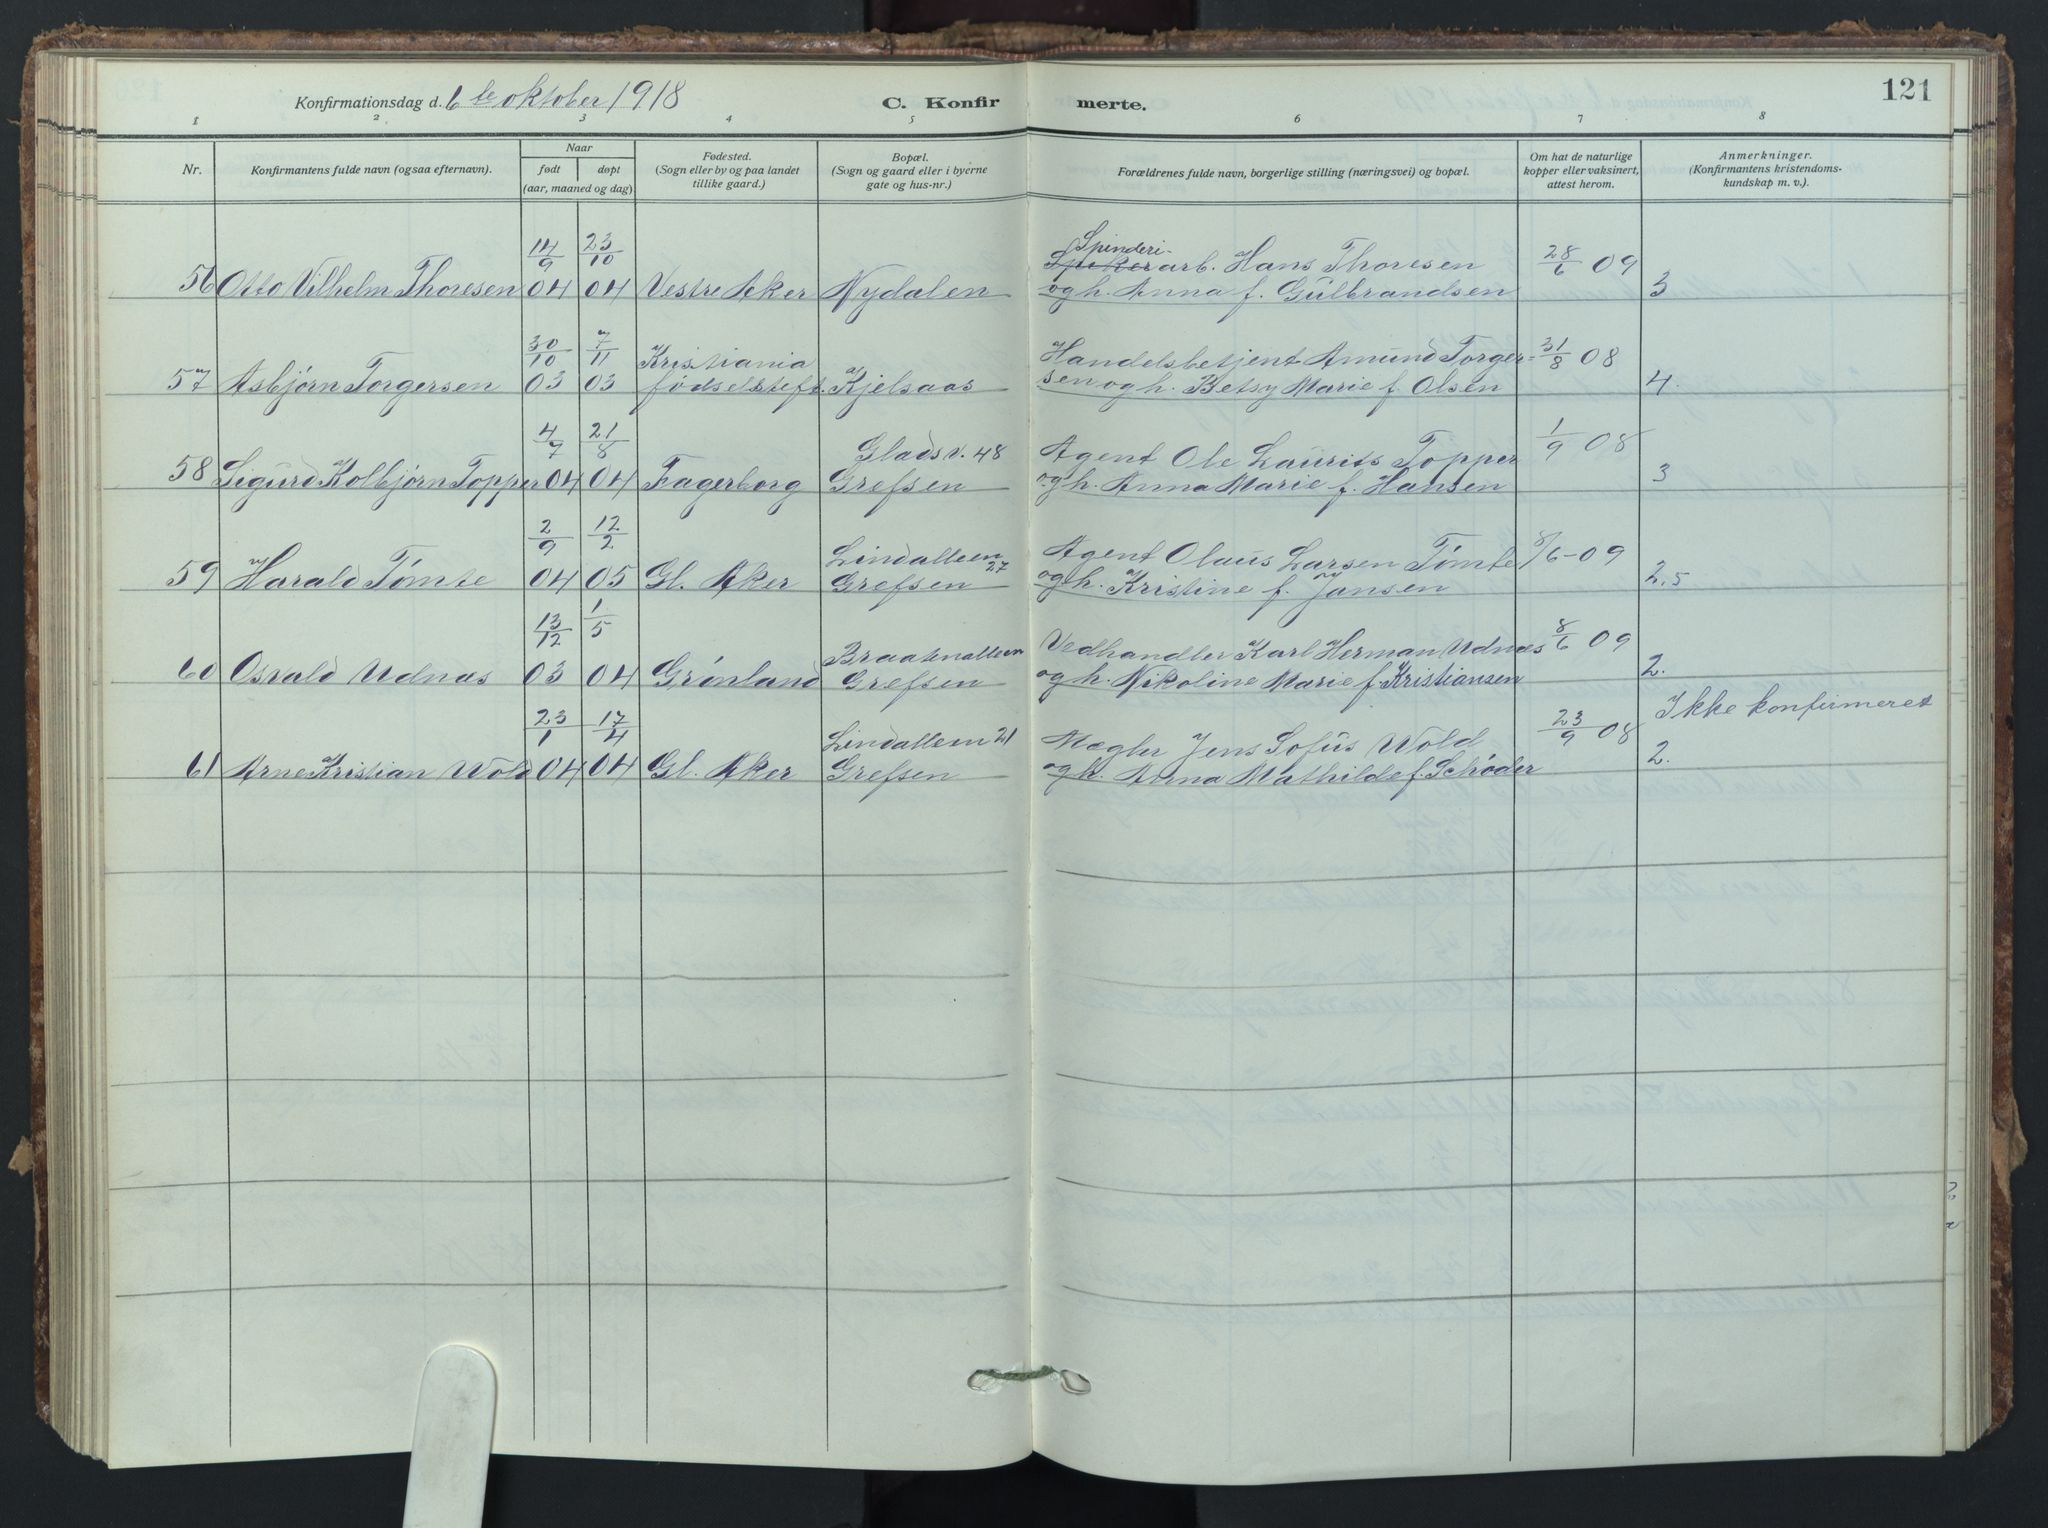 Konfirmationsdag d. 6te oktober 1918
C. Konfirmerte.
121
1 2 3 4 5 6 7 8
Nr. Konfirmantens fulde navn (ogsaa efternavn). Naar født døpt (aar, maaned og dag) Fødested. (Sogn eller by og paa landet tillike gaard.) Bopæl. (Sogn og gaard eller i byerne gate og hus-nr.) Forældrenes fulde navn, borgerlige stilling (næringsvei) og bopæl. Om hat de naturlige kopper eller vaksinert, attest herom. Anmerkninger. (Konfirmantens kristendomskundskap m. v.)
14/9 23/10 Spinderi-
arb. Hans Thoresen 28/6 09
56 Otto Vilhelm Thoresen 04 04 Vestre Aker Nydalen og h. Anna f. Gulbrandsen 3
30/10 7/11 Kristiania Handelsbetjent Amund Torger- 31/8 08
57 Asbjørn Torgersen 03 03 fødselsstift. Kjelsaas sen og h. Betsy Marie f. Olsen 4.
4/7 21/8 Glads v. 48 Agent Ole Laurits Topper 1/9 08
58 Sigurd Kolbjørn Topper 04 04 Fagerborg Grefsen og h. Anna Marie f. Hansen 3
2/9 12/2 Lindalleen 27 Agent Olaus Larsen Tømte 8/6-09
59 Harald Tømte 04 05 Gl. Aker Grefsen og h. Kristine f. Jansen 2.5
13/12 1/5 Braatenalleen Vedhandler Karl Herman Udnæs 8/6 09
60 Osvald Udnæs 03 04 Grønland Grefsen og h. Nikoline Marie f. Kristiansen 2.
23/1 17/4 Lindalleen 21 Mægler Jens Sofus Wold 23/9 08 Ikke konfirmeret
61 Arne Kristian Wold 04 04 Gl. Aker Grefsen og h. Anna Mathilde f. Schøder 2.